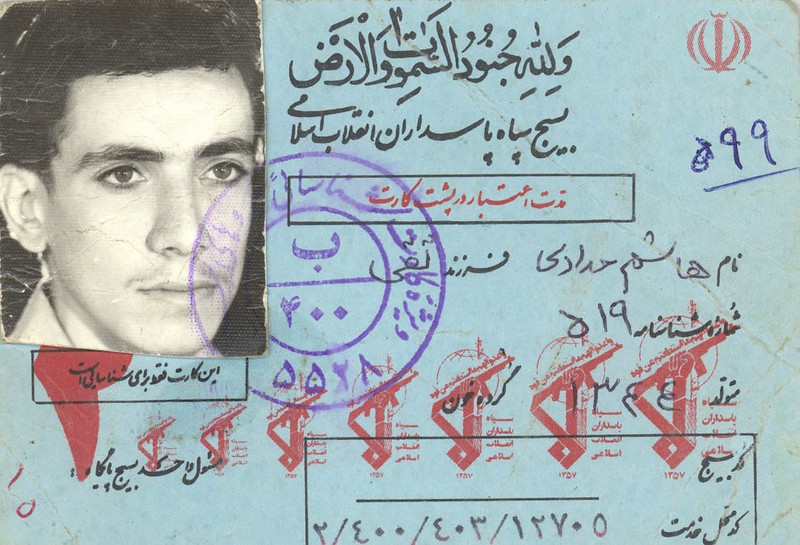 وَلِلّٰهِ جُنُودُ السَّمٰوَاتِ وَالْاَرْضِ
بسیج سپاه پاسداران انقلاب اسلامی
۵۹۹
مدت اعتبار در پشت کارت
نام هاشم حدادی فرزند تقی
شماره شناسنامه ۵۱۹
متولد ۱۳۴۴ گروه خون
ب
۴۰۰
این کارت فقط برای شناسایی است
سپاه پاسداران انقلاب اسلامی
۱۳۵۷
مسئول واحد بسیج پایگاه:
کد بسیج
کد محل خدمت ۲/۴۰۰/۴۰۳/۱۲۷۰۵